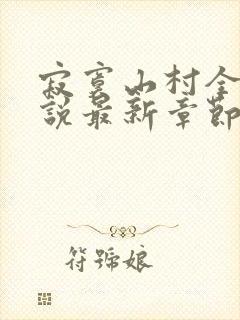 寂寞山村全
説最新章節
符號娘